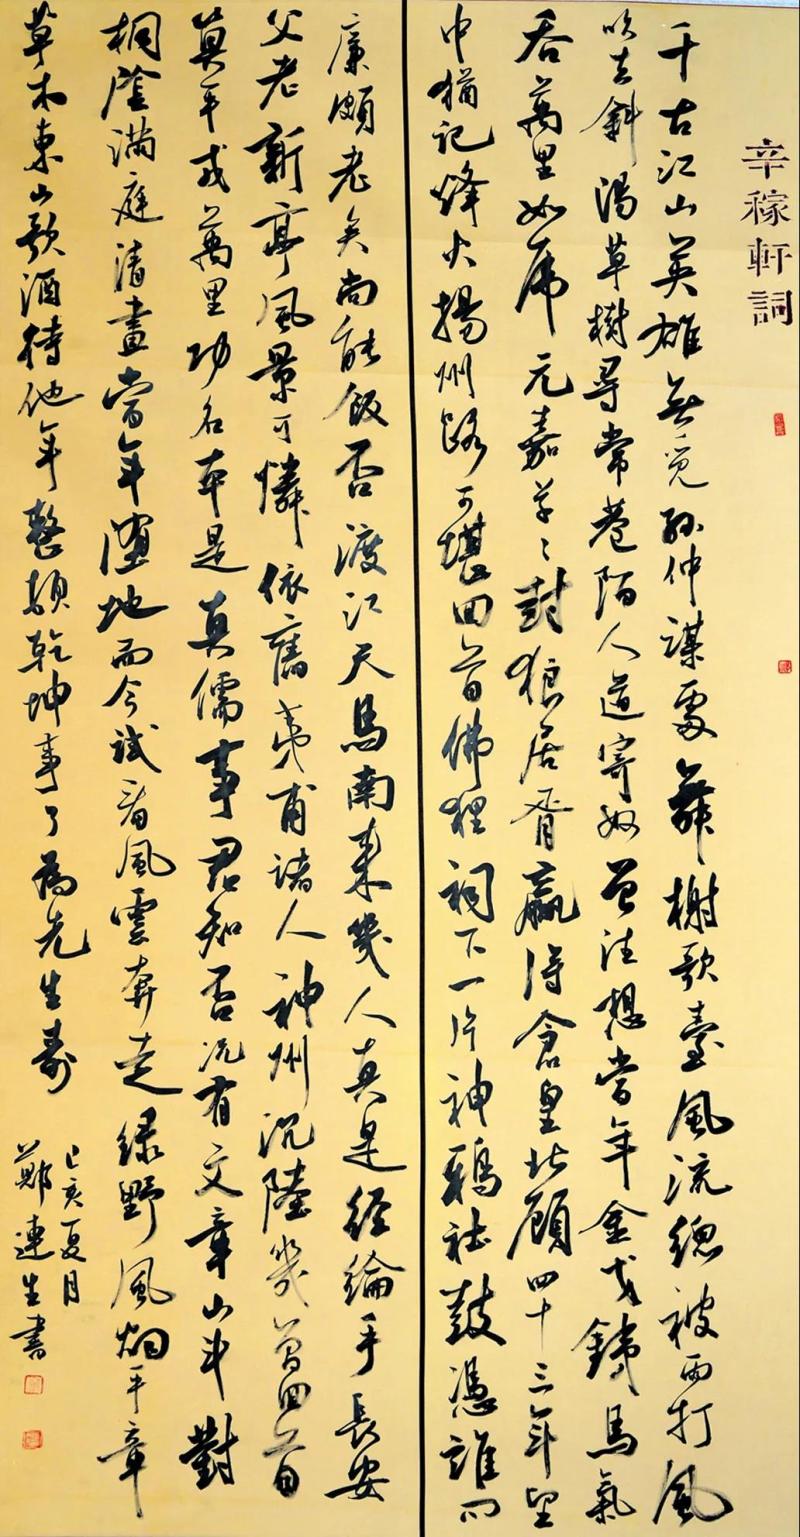 辛稼軒詞
千古江山英雄無覓孫仲謀處舞榭歌臺風流總被雨打風
吹去斜陽草樹尋常巷陌人道寄奴曾住想當年金戈鐵馬氣
吞萬里如虎元嘉草々封狼居胥贏得倉皇北顧四十三年望
中猶記烽火揚州路可堪回首佛狸祠下一片神鴉社鼓憑誰問
廉頗老矣尚能飯否渡江天馬南來幾人真是經綸手長安
父老新亭風景可憐依舊夷甫諸人神州沉陸幾曾回首
算平戎萬里功名本是真儒事君知否况有文章山斗對
桐陰滿庭清晝當年墮地而今試看風雲奔走綠野風烟平章
草木東山歌酒待他年整頓乾坤事了為先生壽
己亥夏月
鄭連生書